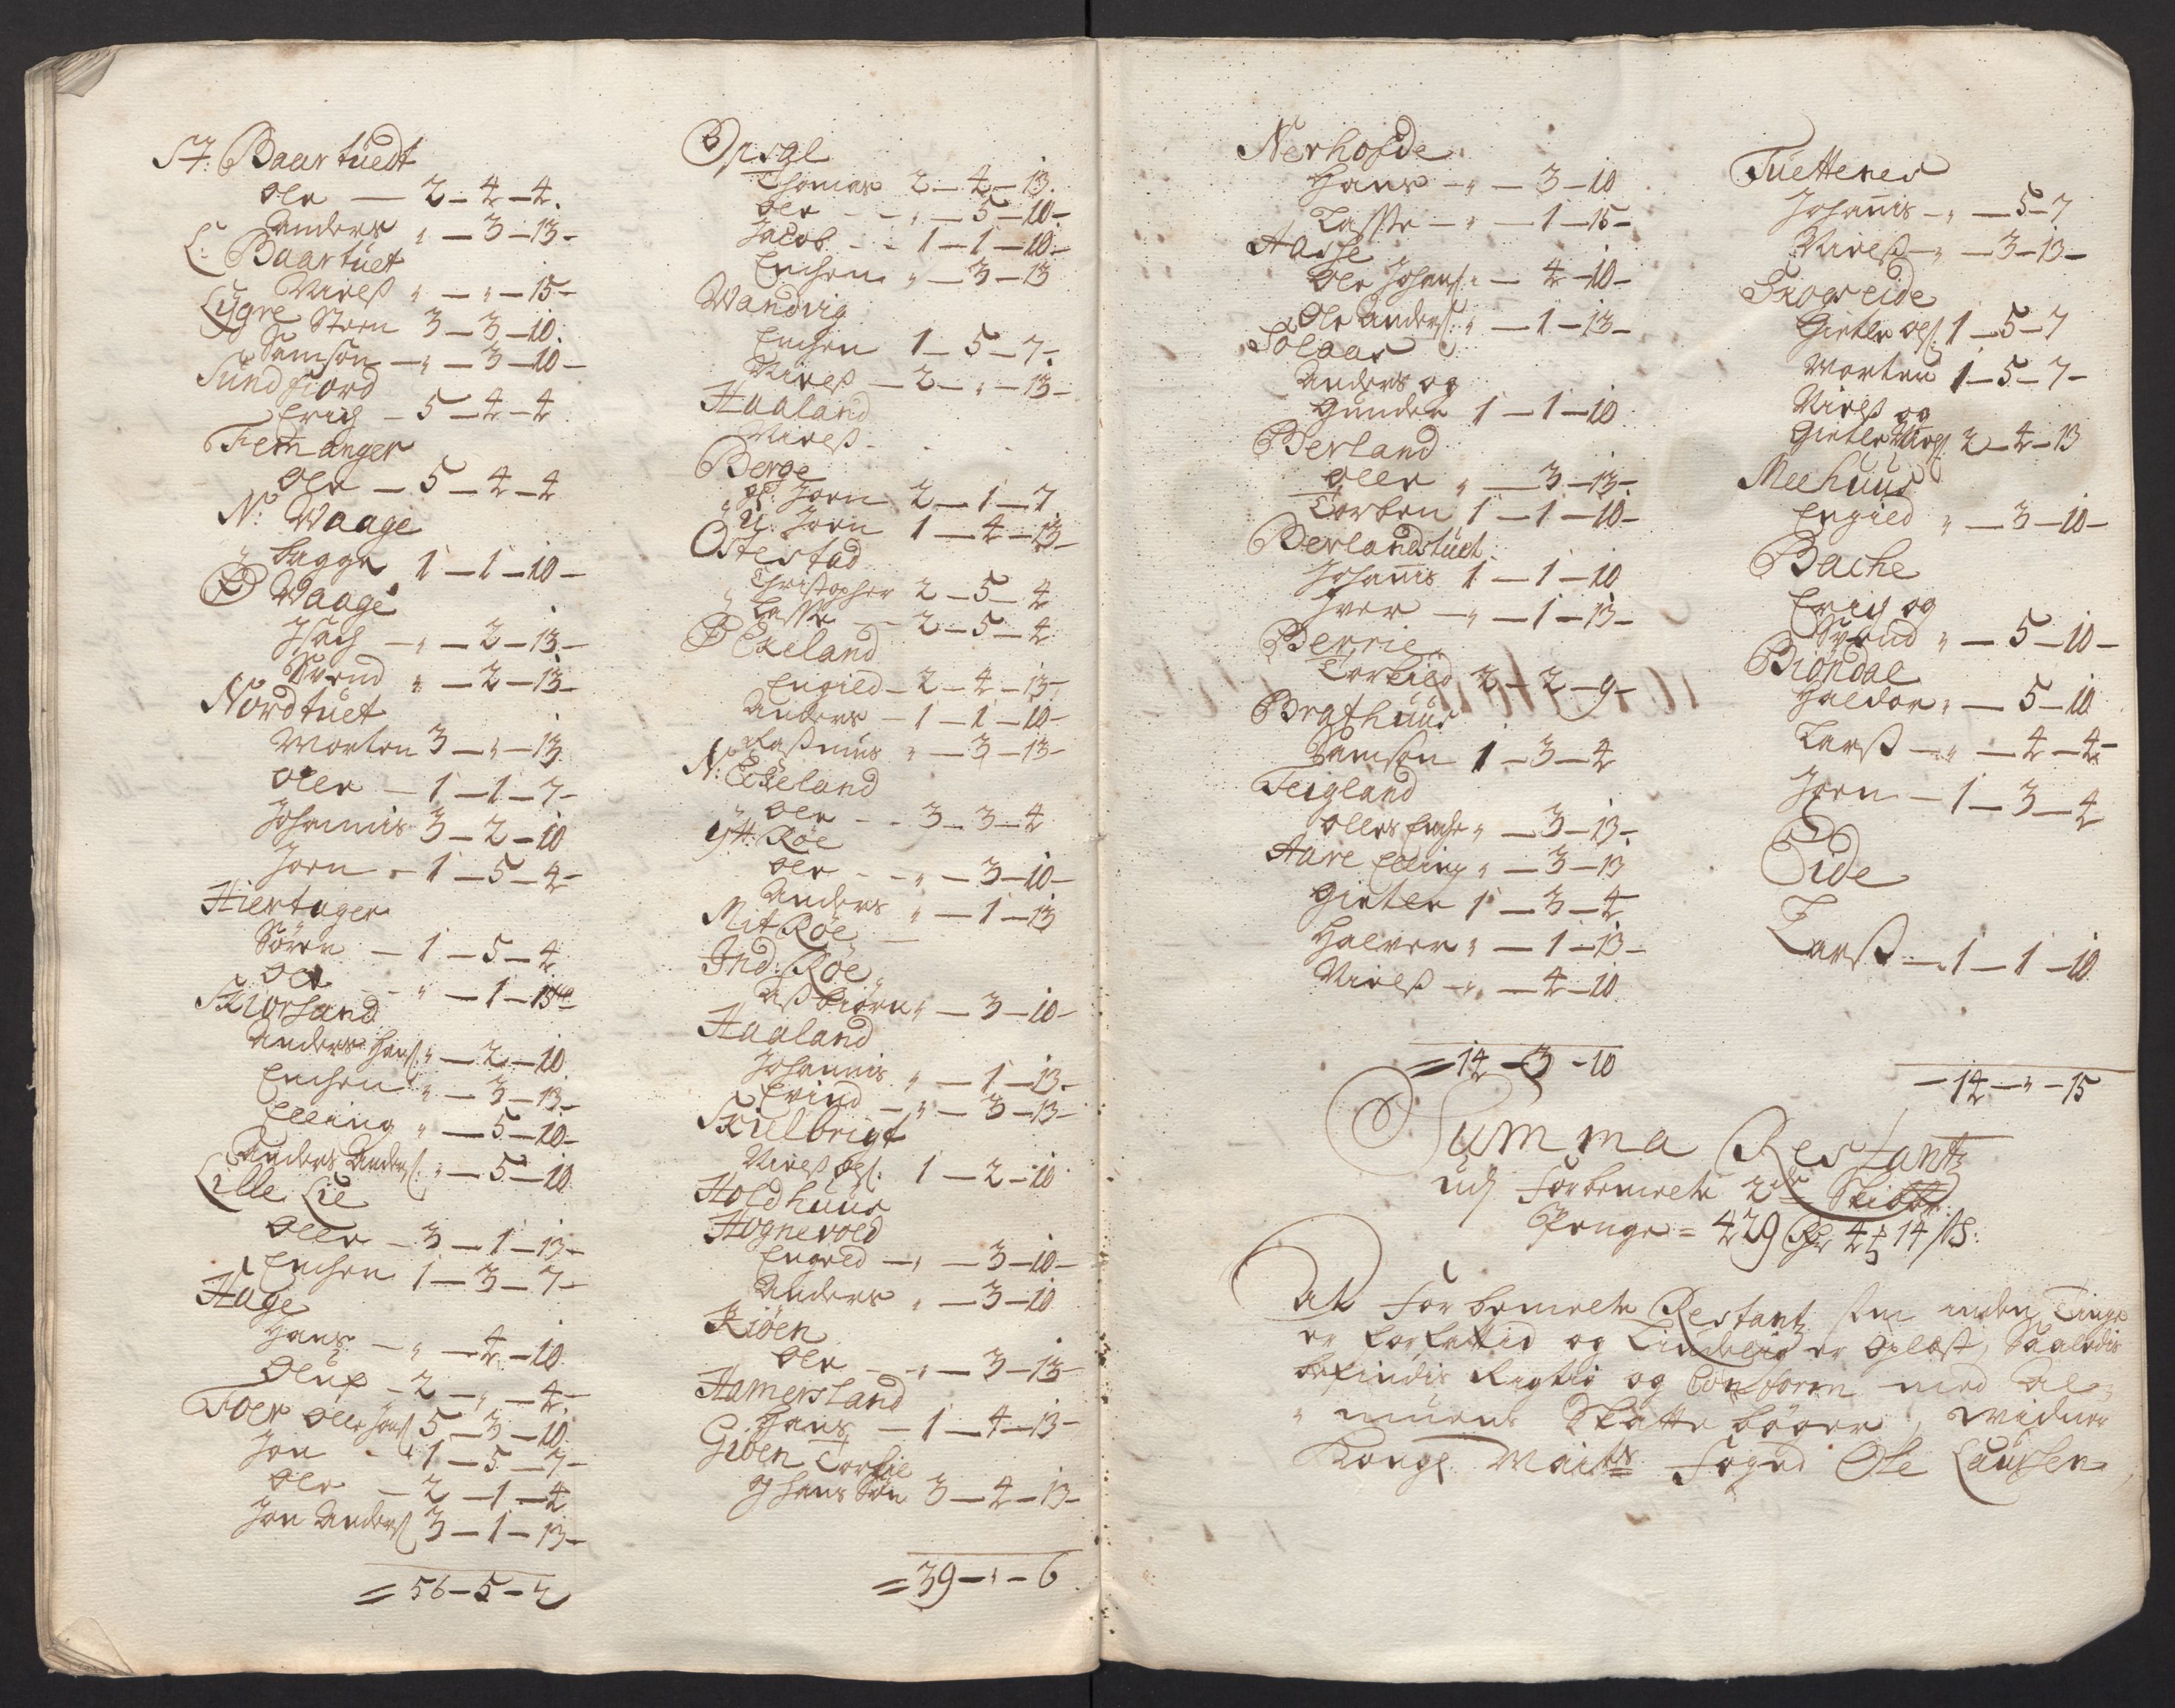 St. Baartuedt
Ole — 2 – 4 – 4.
Anders " — 3 – 13 –
L: Baartuet
Nielß " — " – 15 –
Lygre Steen 3 – 3 – 10.
Samson — " – 3 – 10 –
Sundfiord
Erich – 5 – 4 – 4
Femanger
Ole — 5 – 4 – 4
N: Waage
bagge 1 – 1 – 10 –
Waage
Isach — " – 2 – 13 –
Svend " – 2 – 13 –
Nordtuet
Morten 3 – " – 13
Olle – 1 – 1 – 7 –
Johannis 3 – 2 – 10
Joen – 1 – 5 – 4 –
Hiertager
Sören – 1 – 5 – 4
Ole – " – 1 – 13
Skiorsand
Anders Hanß: " – 2 – 10
Enchen " – 3 – 13 –
Elling " – 5 – 10 –
Anders Anderß: " – 5 – 10
Lille Lie
Olle – 3 – 1 – 13 –
Enchen 1 – 3 – 7 –
Hage
Hans – " – 4 – 10
Oluf – 2 – " – 4 –
Toer Olle Jonß 5 – 3 – 10
Jon – 1 – 5 – 7 –
Ole – 2 – 1 – 4
Jon Anderß 3 – 1 – 13 –
= 56 – 5 – 2
Opsal
Thomas 2 – 4 – 13.
Ole – " – 5 – 10 –
Jacob – 1 – 1 – 10 –
Enchen " – 3 – 13
Wandvig
Enchen 1 – 5 – 7 –
Nielß – 2 – " – 13 –
Haaland
Nielß
Berge
Joen 2 – 1 – 7
Joen 1 – 4 – 13 –
Östestad
Christopher 2 – 5 – 4
Lasse – 2 – 5 – 4
Ekeland
Engield – 2 – 4 – 13 –
Anders – 1 – 1 – 10 –
Raßmus " – 3 – 13 –
N: Ekeland
Ole – 3 – 3 – 4
Ytt: Röe
Ole – " – 3 – 10 –
Anders " – 1 – 13
Mit Röe –
Ind: Röe
Aßbiörn " – 3 – 10 –
Haaland
Johannis " – 1 – 13 –
Evind – " – 3 – 13 –
Skielbrigt
Nielß Olß: 1 – 2 – 10
Holdhuus
Hognevold
Engeld – " – 3 – 10 –
Anders " – 3 – 10
Kiöen
Ole – " – 3 – 13 –
Hamersland
Hans – 1 – 4 – 13 –
Gioen Torkil
Hans Sön 3 – 4 – 13 –
= 39 – " – 6
Nerhofde
Hans – " – 3 – 10
Lasse – " – 1 – 15 –
Aache
Ole Johanß: " – 4 – 10 –
Ole Anderß: " – 1 – 13 –
Solaas
Anders og
Gunder 1 – 1 – 10
Berland
Olle " – 3 – 13 –
Torben 1 – 1 – 10 –
Berlandstuet
Johannis 1 – 1 – 10
Iver – " – 1 – 13 –
Berrie
Torkild 2 – 2 – 9 –
Brathuus
Samson 1 – 3 – 4
Teigland
Olle " – 3 – 13 –
Aare Elling " – 3 – 13
Gietle 1 – 3 – 4
Halver " – 1 – 13 –
Nielß – " – 4 – 10
= 14 – 3 – 10
Tuettenes
Johannis – " – 5 – 7
Nielß – " – 3 – 13 –
Skogseide
Gietle Olß: 1 – 5 – 7
Morten 1 – 5 – 7 –
Nielß og
Gietle 2 – 4 – 13
Meehuus
Engield " – 3 – 10 –
Bache
Erich og
Svend " – 5 – 10 –
Biöndal
Haldor " – 5 – 10
Larß – " – 4 – 4 –
Joen – 1 – 3 – 4
Eide
Larß – 1 – 1 – 10
– 14 – " – 15
Summa Restantz
udj forbemelte 2de Skibbr:
Penge = 429 Rdr 4 14 ß:
At forbemelte Restantz som inden Tinge
er forfattid og Tiudelig er oplæst, Saaledis
befindis Rigtig og Conform med Al-
muens Skatte bøger, widner
Kongl: Maitts Foged Ole Laursen